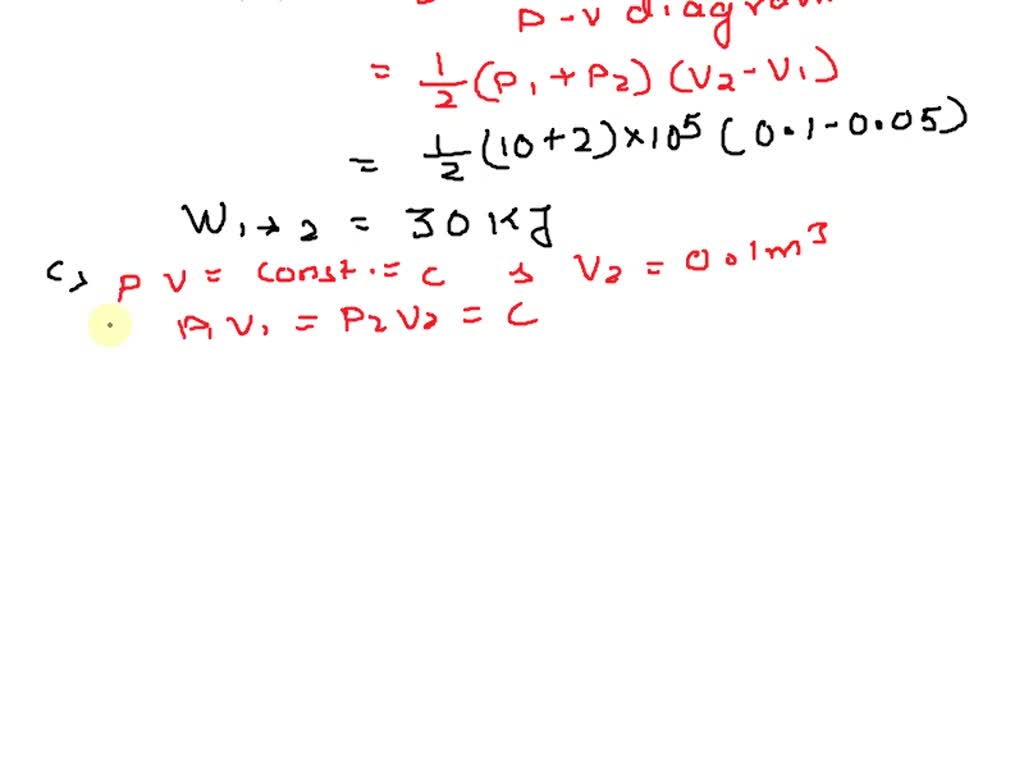 P-V diagram
= 1/2 (P1 + P2) (V2 - V1)
= 1/2 (10+2)×10^5 (0.1-0.05)
W1→2 = 30 KJ
c) PV = const. = C , V2 = 0.1m^3
P1 V1 = P2 V2 = C